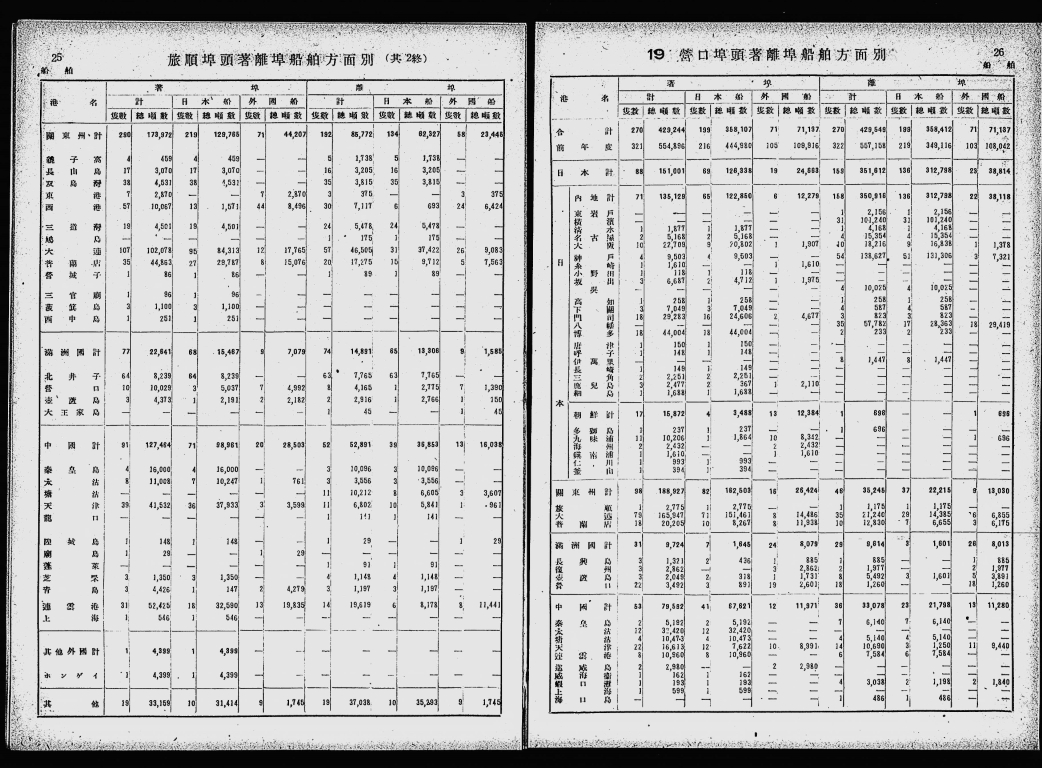 25
船舶
旅順埠頭著離埠船舶方面別 (其2終)
著埠 離埠
港名 計 日本船 外國船 計 日本船 外國船
隻數 總噸數 隻數 總噸數 隻數 總噸數 隻數 總噸數 隻數 總噸數 隻數 總噸數
關東州計 290 173,972 219 129,765 71 44,207 192 85,772 134 62,327 58 23,445
4 459 4 459 — — 5 1,738 5 1,738 — —
長山島 17 3,070 17 3,070 — — 16 3,205 16 3,205 — —
双島灣 38 4,531 38 4,531 — — 35 3,815 35 3,815 — —
東港 7 2,870 — — 7 2,870 3 375 — — 3 375
西港 57 10,067 13 1,571 44 8,496 30 7,117 6 693 24 6,424
三道灣 19 4,501 19 4,501 — — 24 5,478 24 5,478 — —
鳩島 — — — — — — 1 175 1 175 — —
大連 107 102,078 95 84,313 12 17,765 57 46,505 31 37,422 26 9,083
普蘭店 35 44,863 27 29,787 8 15,076 20 17,275 15 9,712 5 7,563
營城子 1 86 1 86 — — 1 89 1 89 — —
三官廟 1 96 1 96 — — — — — — — —
簸箕島 3 1,100 3 1,100 — — — — — — — —
西中島 1 251 1 251 — — — — — — — —
滿洲國計 77 22,641 68 15,467 9 7,079 74 14,891 65 13,306 9 1,585
北井子 64 8,239 64 8,239 — — 63 7,765 63 7,765 — —
營口 10 10,029 3 5,037 7 4,992 8 4,165 1 2,775 7 1,390
壺蘆島 3 4,373 1 2,191 2 2,182 2 2,916 1 2,766 1 150
大王家島 — — — — — — 1 45 — — 1 45
中國計 91 127,464 71 98,961 20 28,503 52 52,891 39 36,853 13 16,038
秦皇島 4 16,000 4 16,000 — — 3 10,096 3 10,096 — —
太沽 8 11,008 7 10,247 1 761 3 3,556 3 3,556 — —
塘沽 — — — — — — 11 10,212 8 6,605 3 3,607
天津 39 41,532 36 37,933 3 3,599 11 6,802 10 5,841 1 961
龍口 — — — — — — 1 141 1 141 — —
隍城島 1 148 1 148 — — 1 29 — — 1 29
廟島 1 29 — — 1 29 — — — — — —
蓬萊 — — — — — — 1 91 1 91 — —
芝罘 3 1,350 3 1,350 — — 4 1,148 4 1,148 — —
青島 3 4,426 1 147 2 4,279 3 1,197 3 1,197 — —
連雲港 31 52,425 18 32,590 13 19,835 14 19,619 6 8,178 8 11,441
上海 1 546 1 546 — — — — — — — —
其他外國計 1 4,399 1 4,399 — — — — — — — —
ホンゲイ 1 4,399 1 4,399 — — — — — — — —
其他 19 33,159 10 31,414 9 1,745 19 37,038 10 35,293 9 1,745
26
船舶
19 營口埠頭著離埠船舶方面別
著埠 離埠
港名 計 日本船 外國船 計 日本船 外國船
隻數 總噸數 隻數 總噸數 隻數 總噸數 隻數 總噸數 隻數 總噸數 隻數 總噸數
合計 270 429,244 199 358,107 71 71,137 270 429,549 199 358,412 71 71,137
前年度 321 554,896 216 444,980 105 109,916 322 557,158 219 349,116 103 108,042
日本計 88 151,001 69 126,338 19 24,663 159 351,612 136 312,798 23 38,814
日本
內地計 71 135,129 65 122,850 6 12,279 158 350,916 136 312,798 22 38,118
東岩戶 — — — — — — 1 2,156 1 2,156 — —
橫濱 — — — — — — 31 101,240 31 101,240 — —
淸水 1 1,877 1 1,877 — — 1 4,168 1 4,168 — —
名古屋 2 5,168 2 5,168 — — 4 15,354 4 15,354 — —
大阪 10 22,709 9 20,802 1 1,907 10 18,216 9 16,838 1 1,378
神戶 4 9,503 4 9,503 — — 54 138,627 51 131,306 3 7,321
糸崎 1 1,610 — — 1 1,610 — — — — — —
小野田 1 118 1 118 — — — — — — — —
坂出 3 6,687 2 4,712 1 1,975 — — — — — —
吳 — — — — — — 4 10,025 4 10,025 — —
高知 1 258 1 258 — — 1 258 1 258 — —
下關 3 7,049 3 7,049 — — 4 587 4 587 — —
門司 18 29,283 16 24,606 2 4,677 3 823 3 823 — —
八幡 — — — — — — 35 57,782 17 28,363 18 29,419
博多 18 44,004 18 44,004 — — 2 233 2 233 — —
唐津 1 150 1 150 — — — — — — — —
呼子 1 148 1 148 — — — — — — — —
伊萬里 — — — — — — 8 1,447 8 1,447 — —
長崎 1 149 1 149 — — — — — — — —
三角 2 2,251 2 2,251 — — — — — — — —
鹿兒島 3 2,477 2 367 1 2,110 — — — — — —
細島 1 1,688 1 1,688 — — — — — — — —
朝鮮計 17 15,872 4 3,488 13 12,384 1 696 — — 1 696
多獅島 1 237 1 237 — — 1 696 — — — —
九味浦 11 10,206 1 1,864 10 8,342 — — — — 1 696
海州 2 2,432 — — 2 2,432 — — — — — —
鎭南浦 1 1,610 — — 1 1,610 — — — — — —
仁川 1 993 1 993 — — — — — — — —
釜山 1 394 1 394 — — — — — — — —
關東州計 98 188,927 82 162,503 16 26,424 46 35,245 37 22,215 9 13,030
旅順 1 2,775 1 2,775 — — 1 1,175 1 1,175 — —
大連 79 165,947 71 151,461 8 14,486 35 21,240 29 14,385 6 6,855
普蘭店 18 20,205 10 8,267 8 11,938 10 12,830 7 6,655 3 6,175
滿洲國計 31 9,724 7 1,645 24 8,079 29 9,614 3 1,601 26 8,013
長興島 3 1,321 2 436 1 885 1 885 — — 1 885
復州 3 2,862 — — 3 2,862 2 1,977 — — 2 1,977
壺蘆島 3 2,049 2 318 1 1,731 8 5,492 3 1,601 5 3,891
營口 22 3,492 3 891 19 2,601 18 1,260 — — 18 1,260
中國計 53 79,592 41 67,621 12 11,971 36 33,078 23 21,798 13 11,280
秦皇島 2 5,192 2 5,192 — — 7 6,140 7 6,140 — —
太沽 12 32,420 12 32,420 — — — — — — — —
塘沽 4 10,473 4 10,473 — — 4 5,140 4 5,140 — —
天津 22 16,613 12 7,622 10 8,991 14 10,690 3 1,250 11 9,440
連雲港 8 10,960 8 10,960 — — 6 7,584 6 7,584 — —
2 2,980 — — 2 2,980 — — — — — —
威海衞 1 162 1 162 — — — — — — — —
1 193 1 193 — — 4 3,038 2 1,198 2 1,840
上海 1 599 1 599 — — — — — — — —
海口島 — — — — — — 1 486 1 486 — —